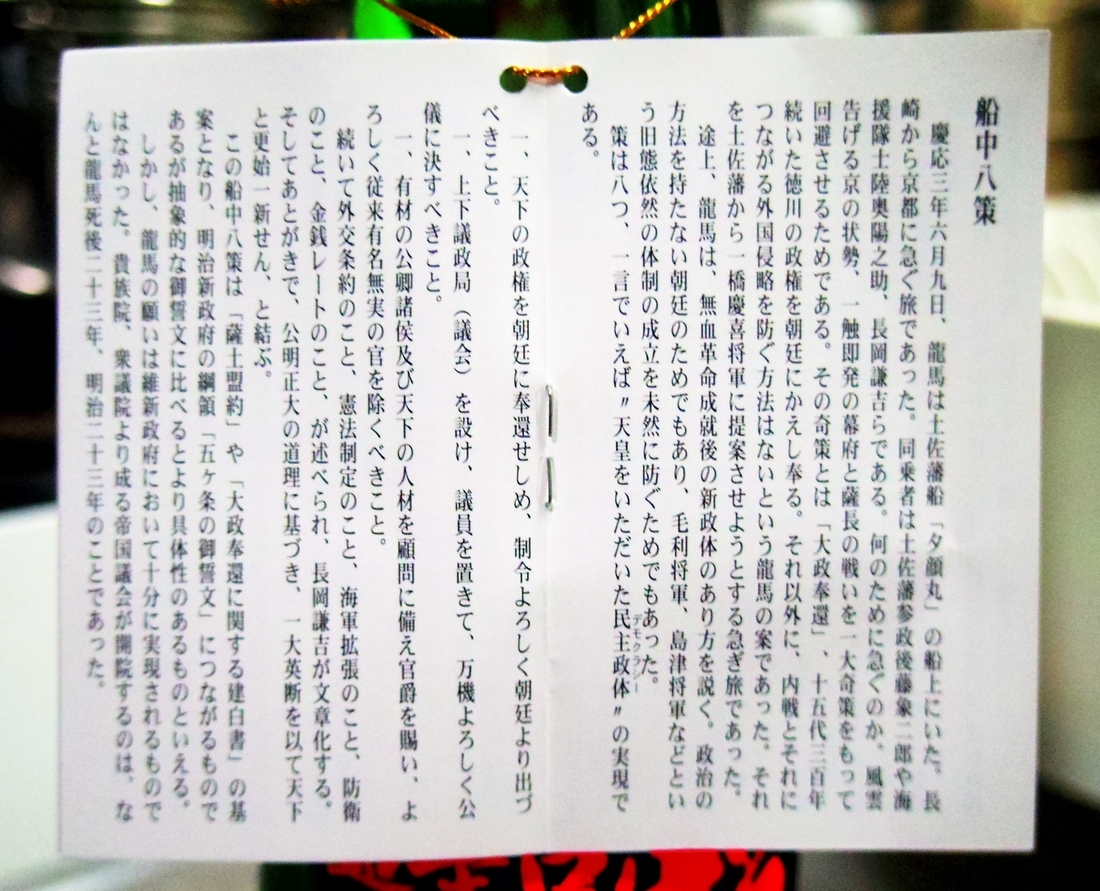 船中八策
慶応三年六月九日、龍馬は土佐藩船「夕顔丸」の船上にいた。長
崎から京都に急ぐ旅であった。同乗者は土佐藩参政後藤象二郎や海
援隊士陸奥陽之助、長岡謙吉らである。何のために急ぐのか。風雲
告げる京の状勢、一触即発の幕府と薩長の戦いを一大奇策をもって
回避させるためである。その奇策とは「大政奉還」、十五代三百年
続いた徳川の政権を朝廷にかえし奉る。それ以外に、内戦とそれに
つながる外国侵略を防ぐ方法はないという龍馬の案であった。それ
を土佐藩から一橋慶喜将軍に提案させようとする急ぎ旅であった。
途上、龍馬は、無血革命成就後の新政体のあり方を説く。政治の
方法を持たない朝廷のためでもあり、毛利将軍、島津将軍などとい
う旧態依然の体制の成立を未然に防ぐためでもあった。
策は八つ、一言でいえば〃天皇をいただいた民主政体〃の実現で
デモクラシー
ある。
一、天下の政権を朝廷に奉還せしめ、制令よろしく朝廷より出づ
べきこと。
一、上下議政局（議会）を設け、議員を置きて、万機よろしく公
儀に決すべきこと。
一、有材の公卿諸侯及び天下の人材を顧問に備え官爵を賜い、よ
ろしく従来有名無実の官を除くべきこと。
続いて外交条約のこと、憲法制定のこと、海軍拡張のこと、防衛
のこと、金銭レートのこと、が述べられ、長岡謙吉が文章化する。
そしてあとがきで、公明正大の道理に基づき、一大英断を以て天下
と更始一新せん、と結ぶ。
この船中八策は「薩土盟約」や「大政奉還に関する建白書」の基
案となり、明治新政府の綱領「五ヶ条の御誓文」につながるもので
あるが抽象的な御誓文に比べるとより具体性のあるものといえる。
しかし、龍馬の願いは維新政府において十分に実現されるもので
はなかった。貴族院、衆議院より成る帝国議会が開院するのは、な
んと龍馬死後二十三年、明治二十三年のことであった。